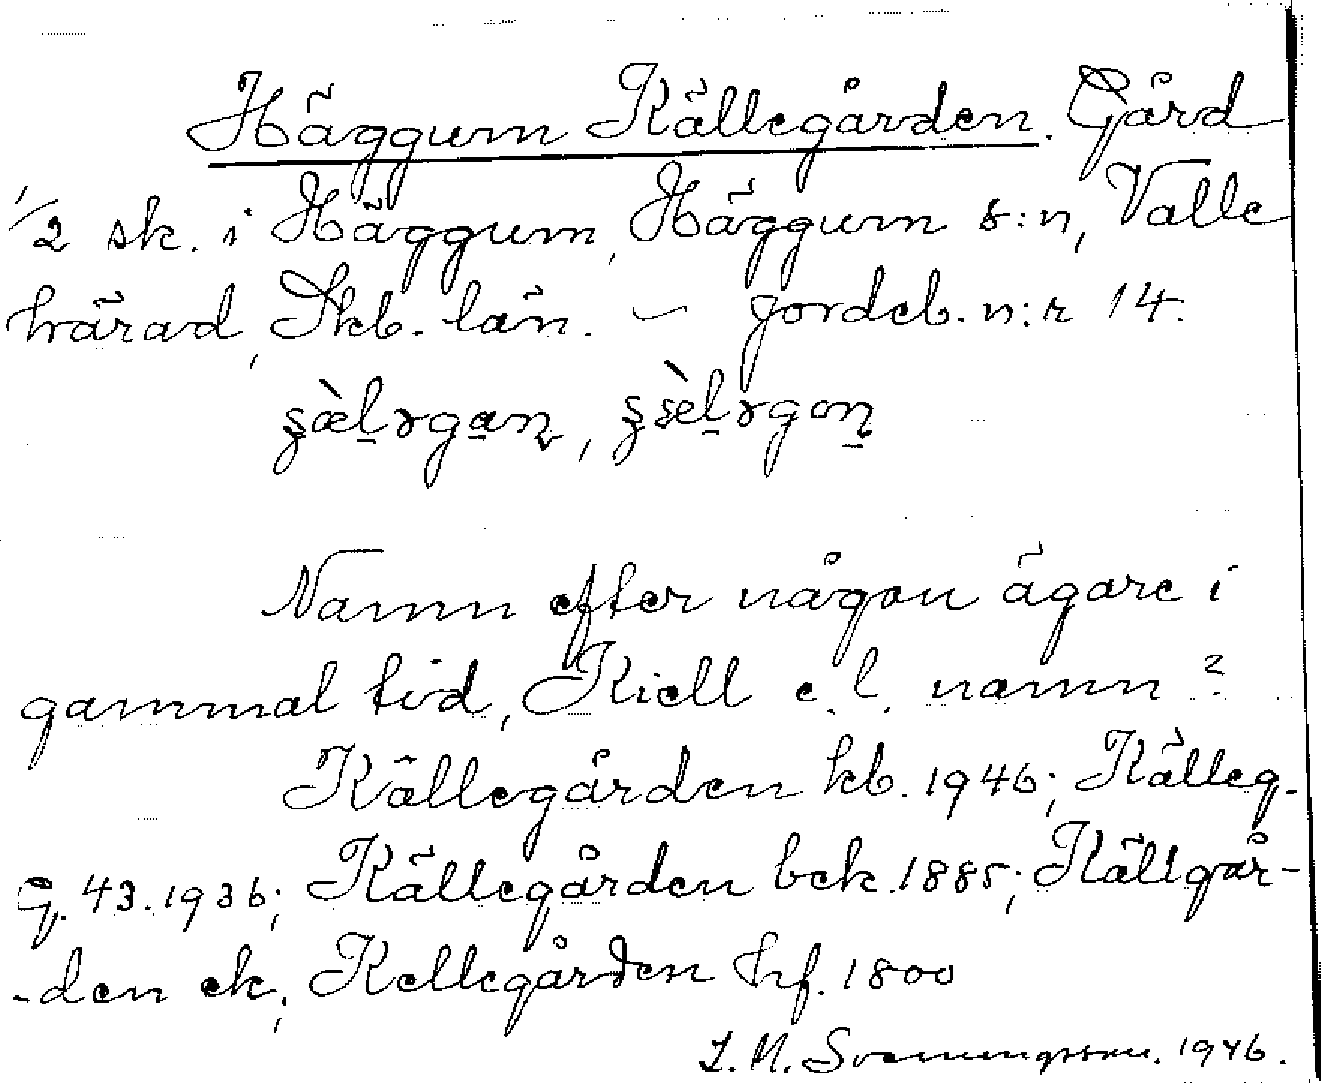 Häggum Källegården. Gård
1/2 sk. i Häggum, Häggum s:n, Valle
härad, Skb. län. – Jordeb. n:r 14.
Namn efter någon ägare i
gammal tid, Kiell e. l. namn?
Källegården kb. 1946; Källeg.
G. 43. 1936; Källegården bek. 1885; Källgår-
-den ek; Kellegården hf. 1800
1946.